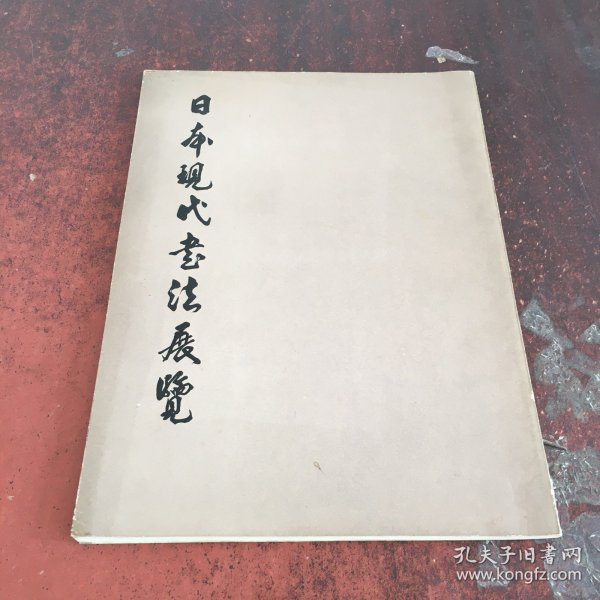 日本現代书法展覧
孔夫子旧書网
www.kongfz.com